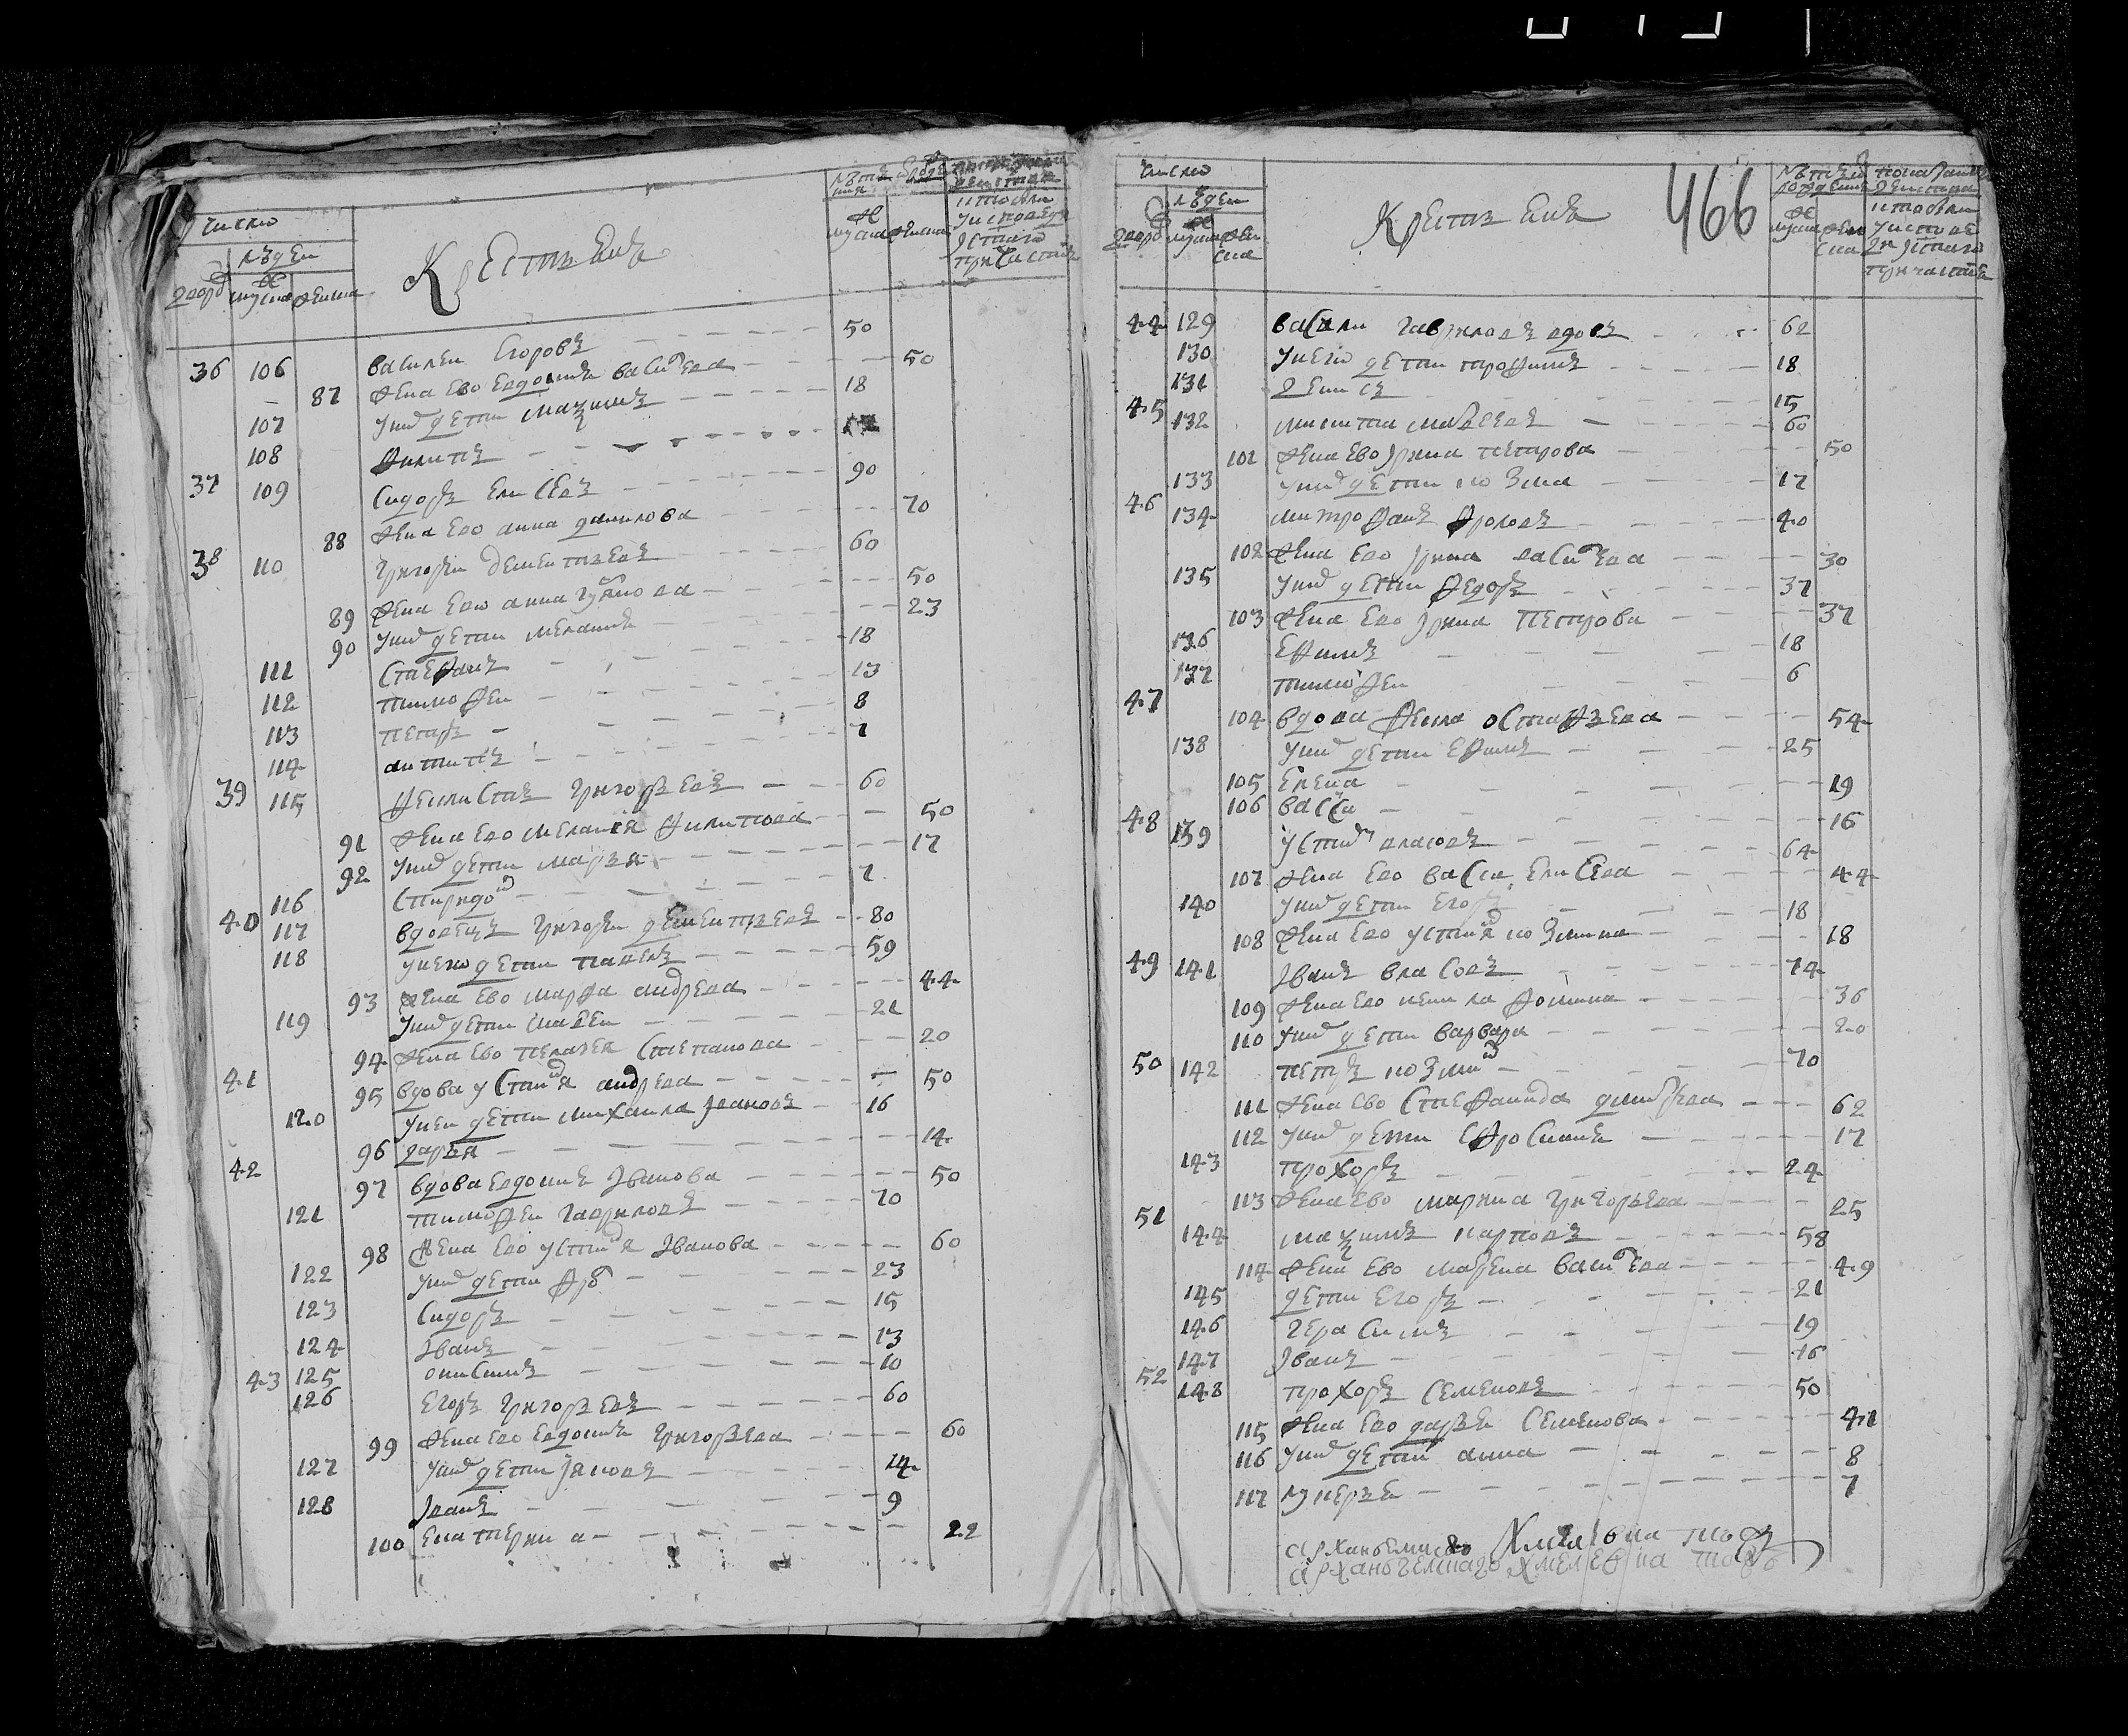 число
людеи
дворо мужска женска
Крестьяне
мужска женска
36 106 василеи Егоровъ 50
87 жена ево евдокия василева 50
107 у них дети максимъ 18
108 филипъ
37 109 сидоръ елисеевъ 90
88 жена ево анна данилова 70
38 110 григореи дементьевъ 60
89 жена ево анна 50
90 у них дети мелания 23
111 стефанъ 18
112 тимофеи 13
113 петръ 8
114 антипъ 7
39 115 феклистъ григорьевъ 60
91 жена ево мелания филипова 50
92 у них дети марья 17
116 спиридо 7
40 117 вдовецъ григореи дементьевъ 80
118 у нево дети павелъ 59
93 жена ево марфа андреева 44
119 у них дети мавеи 21
94 жена ево пелагея степанова 20
41 95 вдова устиня андреева 50
120 у неи дети михаила ивановъ 16
96 дарья 14
42 97 вдова евдокия Иванова 50
121 тимофеи гавриловъ 70
98 жена ево устиня Иванова 60
122 у них дети фро 23
123 сидоръ 15
124 Иванъ 13
43 125 онисимъ 10
126 егоръ григорьевъ 60
99 жена ево евдокия григорьева 60
127 у них дети яковъ 14
128 Иванъ 9
100 екатерина 22
число
людеи
дворо мужска женска
Крестьяне
466
44 129 васили гавриловъ вдовъ 62
130 у нево дети трофимъ 18
131 денисъ 15
45 132 никита мавеевъ 60
101 жена ево ирина петрова 50
133 у них дети козма 17
46 134 митрофанъ фроловъ 40
102 жена ево ирина василева 30
135 у них дети федоръ 37
103 жена ево ирина Петрова 37
136 ефимъ 18
137 тимофеи 6
47 104 вдова фекла остафьева 54
138 у них дети ефимъ 25
105 елена 19
106 васса 16
48 139 устин власовъ 64
107 жена ево васса елисева 44
140 у них дети егоръ 18
108 жена ево устиня козмина 18
49 141 Иванъ власовъ 74
109 жена ево фомина 36
110 у них дети варвара 20
50 142 петръ козми 70
111 жена ево стефанида дмитрева 62
112 у них дети ефросиния 17
143 прохоръ 24
113 жена ево марина григорьева 25
51 144 максимъ карповъ 58
114 жена ево марена василева 49
145 дети егоръ 21
146 герасимъ 19
147 Иванъ 16
52 148 прохоръ семеновъ 50
115 жена ево дарья семенова 41
116 у них дети анна 8
117 лукерья 7